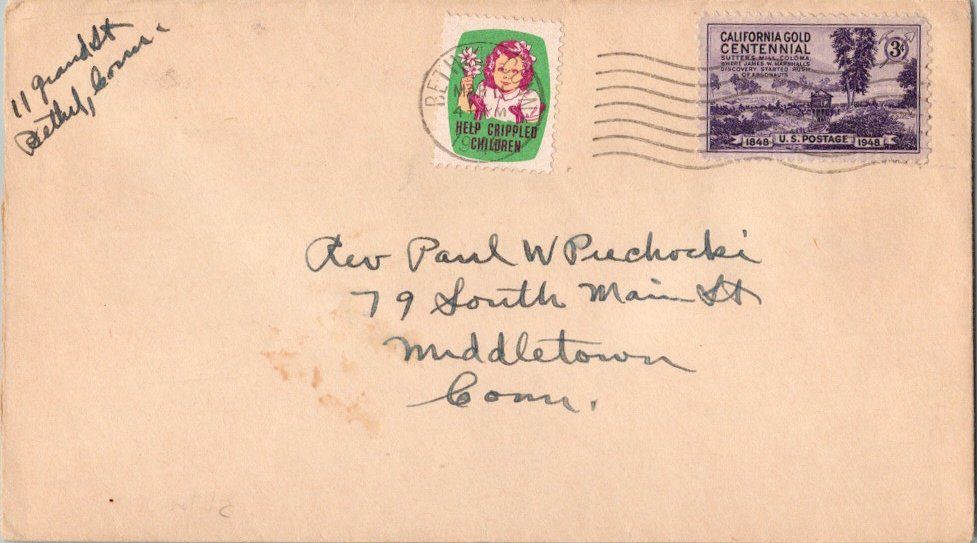 11 Grand St
Bethel, Conn.
BETHEL
CONN
4 PM
HELP CRIPPLED
CHILDREN
CALIFORNIA GOLD
CENTENNIAL
SUTTER'S MILL, COLOMA
WHERE JAMES W. MARSHALL'S
DISCOVERY STARTED RUSH
OF ARGONAUTS
3¢
1848 U.S. POSTAGE 1948
Rev Paul W Piechocki
79 South Main St
Middletown
Conn.